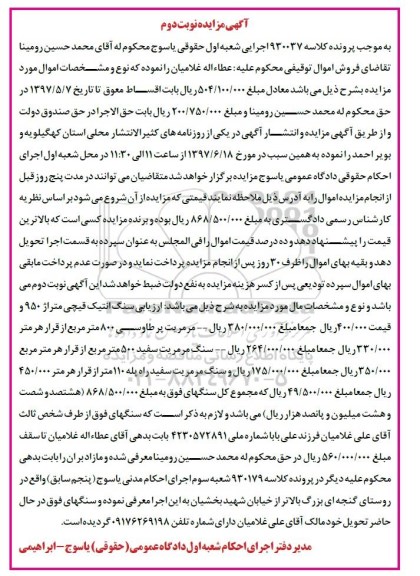 آگهی مزایده نوبت دوم
به موجب پرونده کلاسه ۹۳۰۰۳۷ اجرایی شعبه اول حقوقی یاسوج محکوم له آقای محمد حسین رومینا
تقاضای فروش اموال توقیفی محکوم علیه : عطاءاله غلامیان را نموده که نوع و مشخصات اموال مورد
مزایده بشرح ذیل می باشد معادل مبلغ ۵۰۴/۱۰۰/۰۰۰ ریال بابت اقساط معوق تا تاریخ ۱۳۹۷/۵/۷ در
حق محکوم له محمد حسین رومینا و مبلغ ۲۰۰/۷۵۰/۰۰۰ ریال بابت حق الاجرا در حق صندوق دولت
و از طریق آگهی مزایده و انتشار آگهی در یکی از روزنامه های کثیرالانتشار محلی استان کهگیلویه و
بویراحمد را نموده به همین سبب در مورخ ۱۳۹۷/۶/۱۸ از ساعت ۱۱ الی ۱۱:۳۰ در محل شعبه اول اجرای
احکام حقوقی دادگاه عمومی یاسوج مزایده برگزار خواهد شد متقاضیان می توانند در مدت پنج روز قبل
از انجام مزایده اموال را به آدرس ذیل ملاحظه نمایند قیمتی که مزایده از آن شروع می شود بر اساس نظریه
کارشناس رسمی دادگستری به مبلغ ۸۶۸/۵۰۰/۰۰۰ ریال بوده و برنده مزایده کسی است که بالاترین
قیمت را پیشنهاد دهد و ده درصد قیمت اموال را فی المجلس به عنوان سپرده به قسمت اجرا تحویل
دهد و بقیه بهای اموال را ظرف ۳۰ روز پس از انجام مزایده پرداخت نماید و در صورت عدم پرداخت مابقی
بهای اموال سپرده تودیعی پس از کسر هزینه مزایده به نفع دولت ضبط خواهد شد این آگهی نوبت دوم می
باشد و نوع و مشخصات مال مورد مزایده به شرح ذیل می باشد: ارزیابی سنگ انتیک قیچی متراژ ۹۵۰ و
قیمت ۴۰۰/۰۰۰ ریال جمعا مبلغ ۳۸۰/۰۰۰/۰۰۰ ریال -- مرمریت پرطاوسی ۸۰۰ متر مربع از قرار هر متر
۳۳۰/۰۰۰ ریال جمعا مبلغ ۲۶۴/۰۰۰/۰۰۰ ریال -- سنگ مرمریت سفید ۵۰۰ متر مربع از قرار هر متر مربع
۳۵۰/۰۰۰ ریال جمعا مبلغ ۱۷۵/۰۰۰/۰۰۰ ریال و سنگ مرمریت سفید راه پله ۱۱۰ متر از قرار هر متر ۴۵۰/۰۰۰
ریال جمعا مبلغ ۴۹/۵۰۰/۰۰۰ ریال که مجموع کل سنگهای فوق به مبلغ ۸۶۸/۵۰۰/۰۰۰ (هشتصد و شصت
و هشت میلیون و پانصد هزار ریال) می باشد و لازم به ذکر است که سنگهای فوق از طرف شخص ثالث
آقای علی غلامیان فرزند علی بابا شماره ملی ۴۲۳۰۵۷۲۸۹۱ بابت بدهی آقای عطاءاله غلامیان تا سقف
مبلغ ۵۶۰/۰۰۰/۰۰۰ ریال در حق محکوم له محمد حسین رومینا معرفی شده و مازاد بر ان را بابت بدهی
محکوم علیه دیگر در پرونده کلاسه ۹۳۰۱۷۹ شعبه سوم اجرای احکام مدنی یاسوج (پنجم سابق) واقع در
روستای گنجه ای بزرگ بالاتر از خیابان شهید بخشیان به این اجرا معرفی نموده و سنگهای فوق در حال
حاضر تحویل خود مالک آقای علی غلامیان دارای شماره تلفن ۰۹۱۷۶۲۶۹۱۹۸ گردیده است .
مدیر دفتر اجرای احکام شعبه اول دادگاه عمومی (حقوقی) یاسوج - ابراهیمی